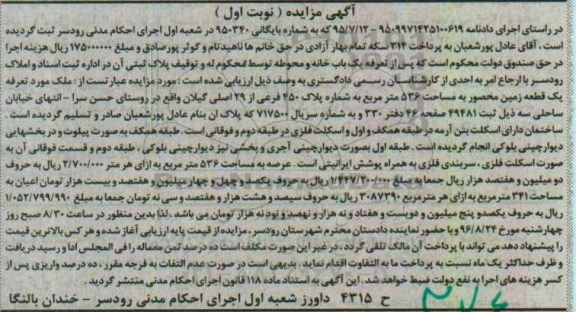 آگهی مزایده ( نوبت اول )
در راستای اجرای دادنامه ۹۵۰۹۹۷۱۴۲۵۱۰۰۶۱۹ – ۹۵/۷/۱۲ که به شماره بایگانی ۹۵۰۳۴۰ در شعبه اول اجرای احکام مدنی رودسر ثبت گردیده
است ، آقای عادل پورشعبان به پرداخت ۳۱۴ سکه تمام بهار آزادی در حق خانم ها ناهیدتام و کوثر پورصادق و مبلغ ۱۷۵۰۰۰۰۰۰ ریال هزینه اجرا
در حق صندوق دولت محکوم است که پس از تعرفه یک باب خانه و محوطه توسط محکوم له و توقیف پلاک ثبتی آن در اداره ثبت اسناد و املاک
رودسر با ارجاع امر به احدی از کارشناسان رسمی دادگستری به وصف ذیل ارزیابی شده است : مورد مزایده عبارتست از : ملک مورد تعرفه
یک قطعه زمین محصور به مساحت ۵۳۶ متر مربع به شماره پلاک ۴۵۰ فرعی از ۲۹ اصلی گیلان واقع در روستای حسن سرا – انتهای خیابان
ساحلی سه ذیل ثبت ۴۹۴۸۱ صفحه ۴۶ دفتر ۳۳۰ و به شماره سریال ۷۱۷۵۰۰ که پلاک آن بنام عادل پورشعبان صادر و تسلیم گردیده است .
ساختمان دارای اسکلت بتن آرمه در طبقه همکف و اول و اسکلت فلزی در طبقه دوم و فوقانی است . طبقه همکف به صورت پیلوت و در بخشهایی
دیوارچینی بلوکی انجام گردیده است . طبقه اول بصورت دیوارچینی آجری و بخشی نیز دیوارچینی بلوکی ، طبقه دوم و قسمت فوقانی آن به
صورت اسکلت فلزی ، سربندی فلزی به همراه پوشش ایرانیتی است . عرصه به مساحت ۵۳۶ متر مربع به ازای هر متر ۲/۷۰۰/۰۰۰ ریال به حروف
دو میلیون و هفتصد هزار ریال جمعا به مبلغ ۱/۴۴۷/۲۰۰/۰۰۰ ریال به حروف یکصد و چهل و چهار میلیون و هفتصد و بیست هزار تومان اعیان به
مساحت ۳۴۱ متر مربع به ازای هر متر مربع ۳۰۸۷۳۹۰ ریال به حروف سیصد و هشت هزار و هفتصد و سی نه تومان جمعا به مبلغ ۱/۰۵۲/۷۹۹/۹۹۰
ریال به حروف یکصدو پنج میلیون و دویست و هفتاد و نه هزار و نهصد و نود نه هزار تومان می باشد . لذا بدین منظور در ساعت ۸/۳۰ صبح روز
چهارشنبه مورخ ۹۶/۸/۲۴ و با حضور نماینده دادستان محترم شهرستان رودسر ، مزایده از قیمت پایه ارزیابی آغاز شده و هر کس بالاترین قیمت
را پیشنهاد دهد می تواند با پرداخت آن مالک تلقی گردد ، در غیر این صورت مکلف است ده درصد ثمن معامله را فی المجلس ادا و رسید دریافت
و ظرف حداکثر یک ماه نسبت به پرداخت ما به التفاوت اقدام نماید . بدیهی است در صورت عدم التفات به فرجه مقرر ، ده درصد واریزی پس از
کسر هزینه های اجرا به نفع دولت ضبط خواهد شد . این آگهی به استناد ماده ۱۱۸ قانون اجرای احکام مدنی منتشر گردید .
ح ۴۳۱۵ داورز شعبه اول اجرای احکام مدنی رودسر – خندان بالنگا